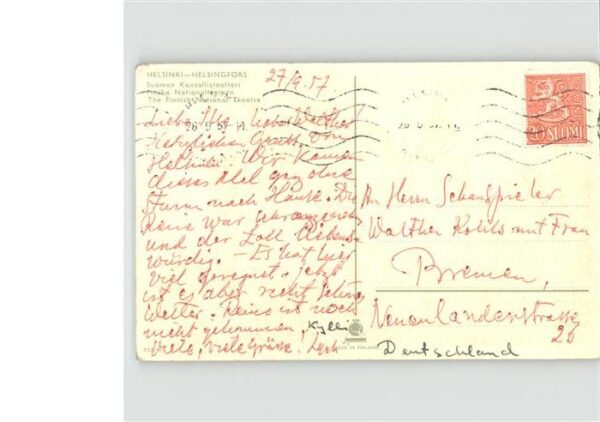 HELSINKI—HELSINGFORS
Suomen Kansallisteatteri
Finska Nationalteatern
The Finnish National Theatre
27/9.57
20 SUOMI
Liebe lieber Walther
Herzlichen Gruss von
Helsinki. Wir kamen
dieses Mal ganz ohne
Sturm nach Hause. Die
Reise war
und der Zoll
würdig. — Es hat hier
viel geregnet. Jetzt
ist es aber recht schön
Wetter. ist noch
nicht gekommen. Kylli
Viele, viele Grüsse!
An Herrn Schauspieler
Walther mit Frau
Bremen,
26
Deutschland